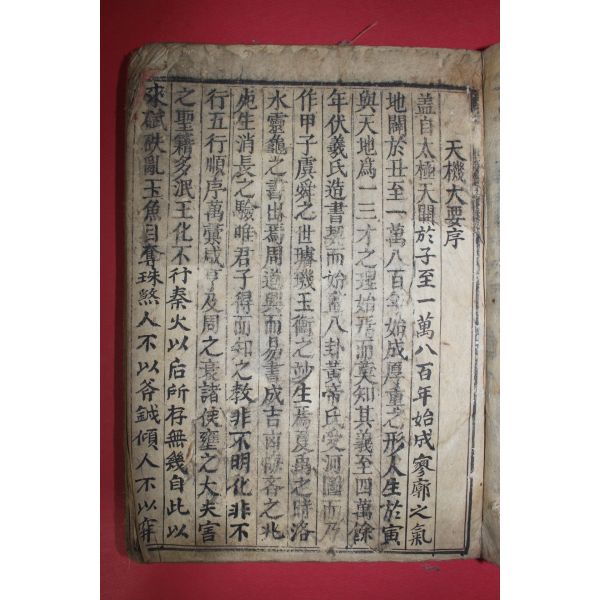 天機大要序
盖自太極天闢於子至一萬八百年始成寥廓之氣
地闢於丑至一萬八百年始成厚重之形人生於寅
與天地爲一三才之理始焉而莫知其義至四萬餘
年伏羲氏造書契而始畫八卦黃帝氏受河圖而乃
作甲子虞舜之世璿璣玉衡之妙生焉夏禹之時洛
水靈龜之書出焉周道興而易書成吉凶悔吝之兆
死生消長之驗唯君子得而知之敎非不明化非不
行五行順序萬彙咸亨及周之衰諸侯壅之大夫害
之聖籍多泯王化不行秦火以后所存無幾自此以
來碔砆亂玉魚目奪珠煞人不以斧鉞傾人不以穽